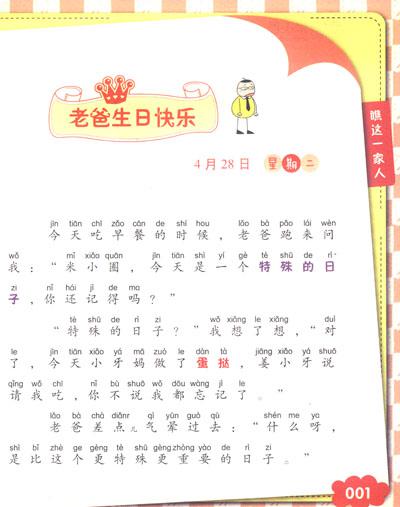 老爸生日快乐
4月28日 星期二
瞧这一家人
jīn tiān chī zǎo cān de shí hou lǎo bà pǎo lái wèn
今天吃早餐的时候，老爸跑来问
wǒ mǐ xiǎo quān jīn tiān shì yí gè tè shū de rì
我：“米小圈，今天是一个特殊的日
zi nǐ hái jì de ma
子，你还记得吗？”
tè shū de rì zi wǒ xiǎng le xiǎng duì
“特殊的日子？”我想了想，“对
le jīn tiān xiǎo yá mā zuò le dàn tà jiāng xiǎo yá shuō
了，今天小牙妈做了蛋挞，姜小牙说
qǐng wǒ chī nǐ bù shuō wǒ dōu wàng jì le
请我吃，你不说我都忘记了。”
lǎo bà chà diǎnr qì yūn guò qù shén me ya
老爸差点儿气晕过去：“什么呀，
shì bǐ zhè ge gèng tè shū gèng zhòng yào de rì zi
是比这个更特殊更重要的日子。”
001